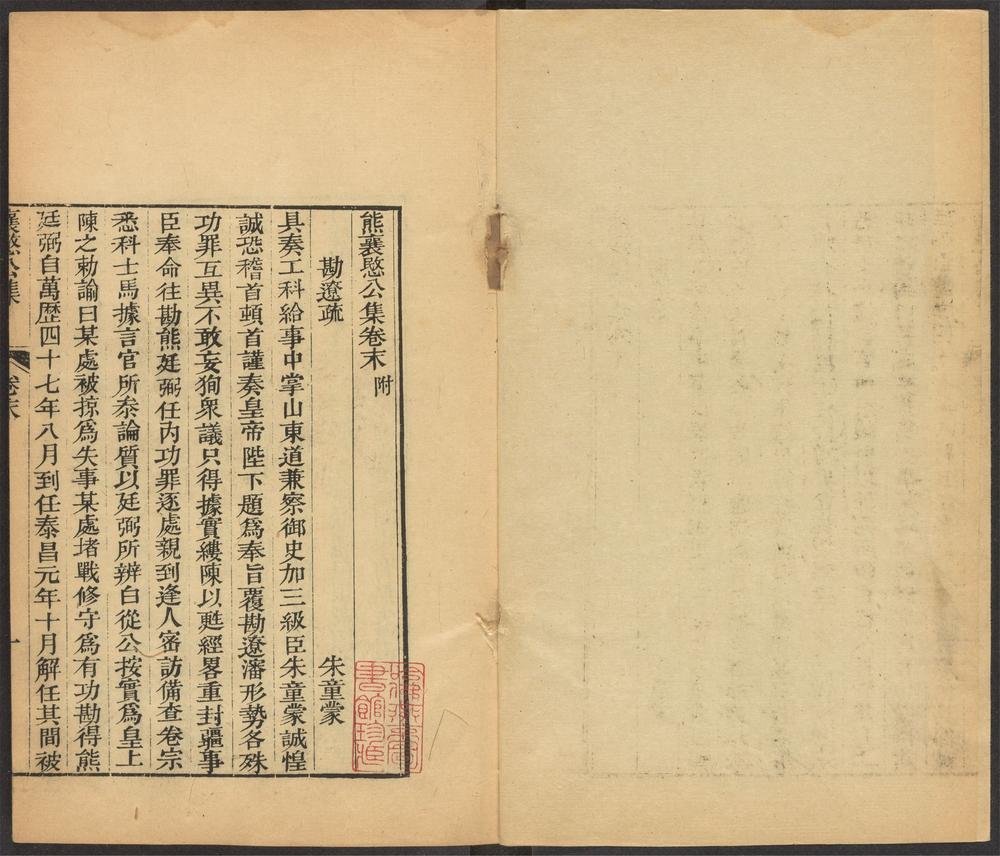 熊襄愍公集卷末 附
勘遼疏 朱童蒙
具奏工科給事中掌山東道兼察御史加三級臣朱童蒙誠惶
誠恐稽首頓首謹奏皇帝陛下題爲奉旨覆勘遼瀋形勢各殊
功罪互異不敢妄狥衆議只得據實縷陳以甦經畧重封疆事
臣奉命往勘熊廷弼任内功罪逐處親到逢人密訪備查卷宗
悉科士馬據言官所叅論質以廷弼所辨白從公按實爲皇上
陳之勅諭曰某處被掠爲失事某處堵戰修守爲有功勘得熊
廷弼自萬歷四十七年八月到任泰昌元年十月解任其間被
襄愍公集 卷末 一